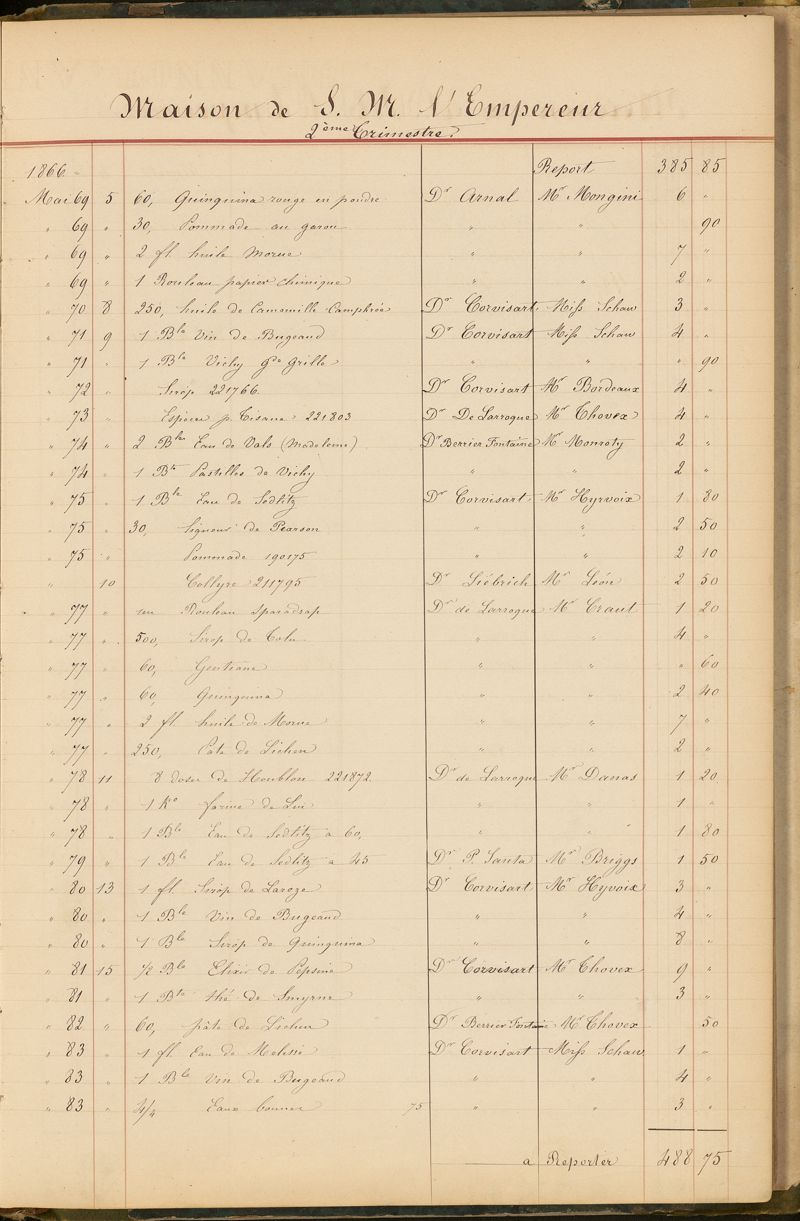 Maison de S. M. l'Empereur
2ème Trimestre.
1866 Report 385 85
Mai 69 5 60, Quinquina rouge en poudre Dr Arnal Mr Mongini 6 "
" 69 " 30, Pommade au garou " " 90
" 69 " 2 fl huile Morue " " 7 "
" 69 " 1 Rouleau papier chimique " " 2 "
" 70 8 250, huile de Camomille Camphrée Dr Corvisart Miss Schaw 3 "
" 71 9 1 Ble Vin de Bugeaud Dr Corvisart Miss Schaw 4 "
" 71 " 1 Ble Vichy Gde Grille " " " 90
" 72 " Sirop 221766 Dr Corvisart Mr Bordeaux 4 "
" 73 " Espèces p. Tisane 221803 Dr De Larroque Mr Chovex 4 "
" 74 " 2 Bles Eau de Vals (Madeleine) Dr Berrier Fontaine Mr Monroty 2 "
" 74 " 1 Bte Pastilles de Vichy " " 2 "
" 75 " 1 Ble Eau de Sedlitz Dr Corvisart Mr Hyrvoix 1 80
" 75 " 30, liqueur de Pearson " " 2 50
" 75 " Pommade 190175 " " 2 10
" 10 Collyre 211795 Dr Liébrich Mr Léon 2 50
" 77 " un Rouleau sparadrap Dr de Larroque Mr Craut 1 20
" 77 " 500, Sirop de Tolu " " 4 "
" 77 " 60, Gentiane " " " 60
" 77 " 60, Quinquina " " 2 40
" 77 " 2 fl huile de Morue " " 7 "
" 77 " 250, Pate de Lichen " " 2 "
" 78 11 8 doses de Houblon 221872 Dr de Larroque Mr Danas 1 20
" 78 " 1 Ko farine de Lin " " 1 "
" 78 " 1 Ble Eau de Sedlitz a 60, " " 1 80
" 79 " 1 Ble Eau de Sedlitz a 45 Dr P. Santa Mr Briggs 1 50
" 80 13 1 fl Sirop de Laroze Dr Corvisart Mr Hyvoix 3 "
" 80 " 1 Ble Vin de Bugeaud " " 4 "
" 80 " 1 Ble Sirop de Quinquina " " 8 "
" 81 15 1/2 Ble Elixir de Pepsine Dr Corvisart Mr Chovex 9 "
" 81 " 1 Bte thé de Smyrne " " 3 "
" 82 " 60, pâte de Lichen Dr Berrier Fontaine Mr Chovex 50
" 83 " 1 fl Eau de Melisse Dr Corvisart Miss Schaw 1 "
" 83 " 1 Ble Vin de Bugeaud " " 4 "
" 83 " 4/4 Eaux bonnes 75 " " 3 "
a Reporter 488 75